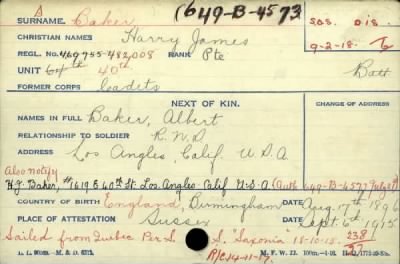 A (649-B-4573
SURNAME. Baker S.O.S. DIS.
CHRISTIAN NAMES Harry James 9-2-18.
REGL. NO. 469755-482008 RANK Pte
UNIT 64th 40th Batt
FORMER CORPS Cadets
NEXT OF KIN. CHANGE OF ADDRESS
NAMES IN FULL Baker, Albert
RELATIONSHIP TO SOLDIER
ADDRESS Los Angles, Calif. U.S.A
Also notify
H.J. Baker, #1619 E 40th St. Los. Angles. Calif. U-S-A (Auth 649-B-4577
COUNTRY OF BIRTH England, Birmingham Aug. 17th 1896
PLACE OF ATTESTATION Sussex Sept. 6th 1915
Sailed from Quebec Per S.S. "Saxonia" 18-10-15. 238
R/C 14-11-17. 27
M. F. W. 22.